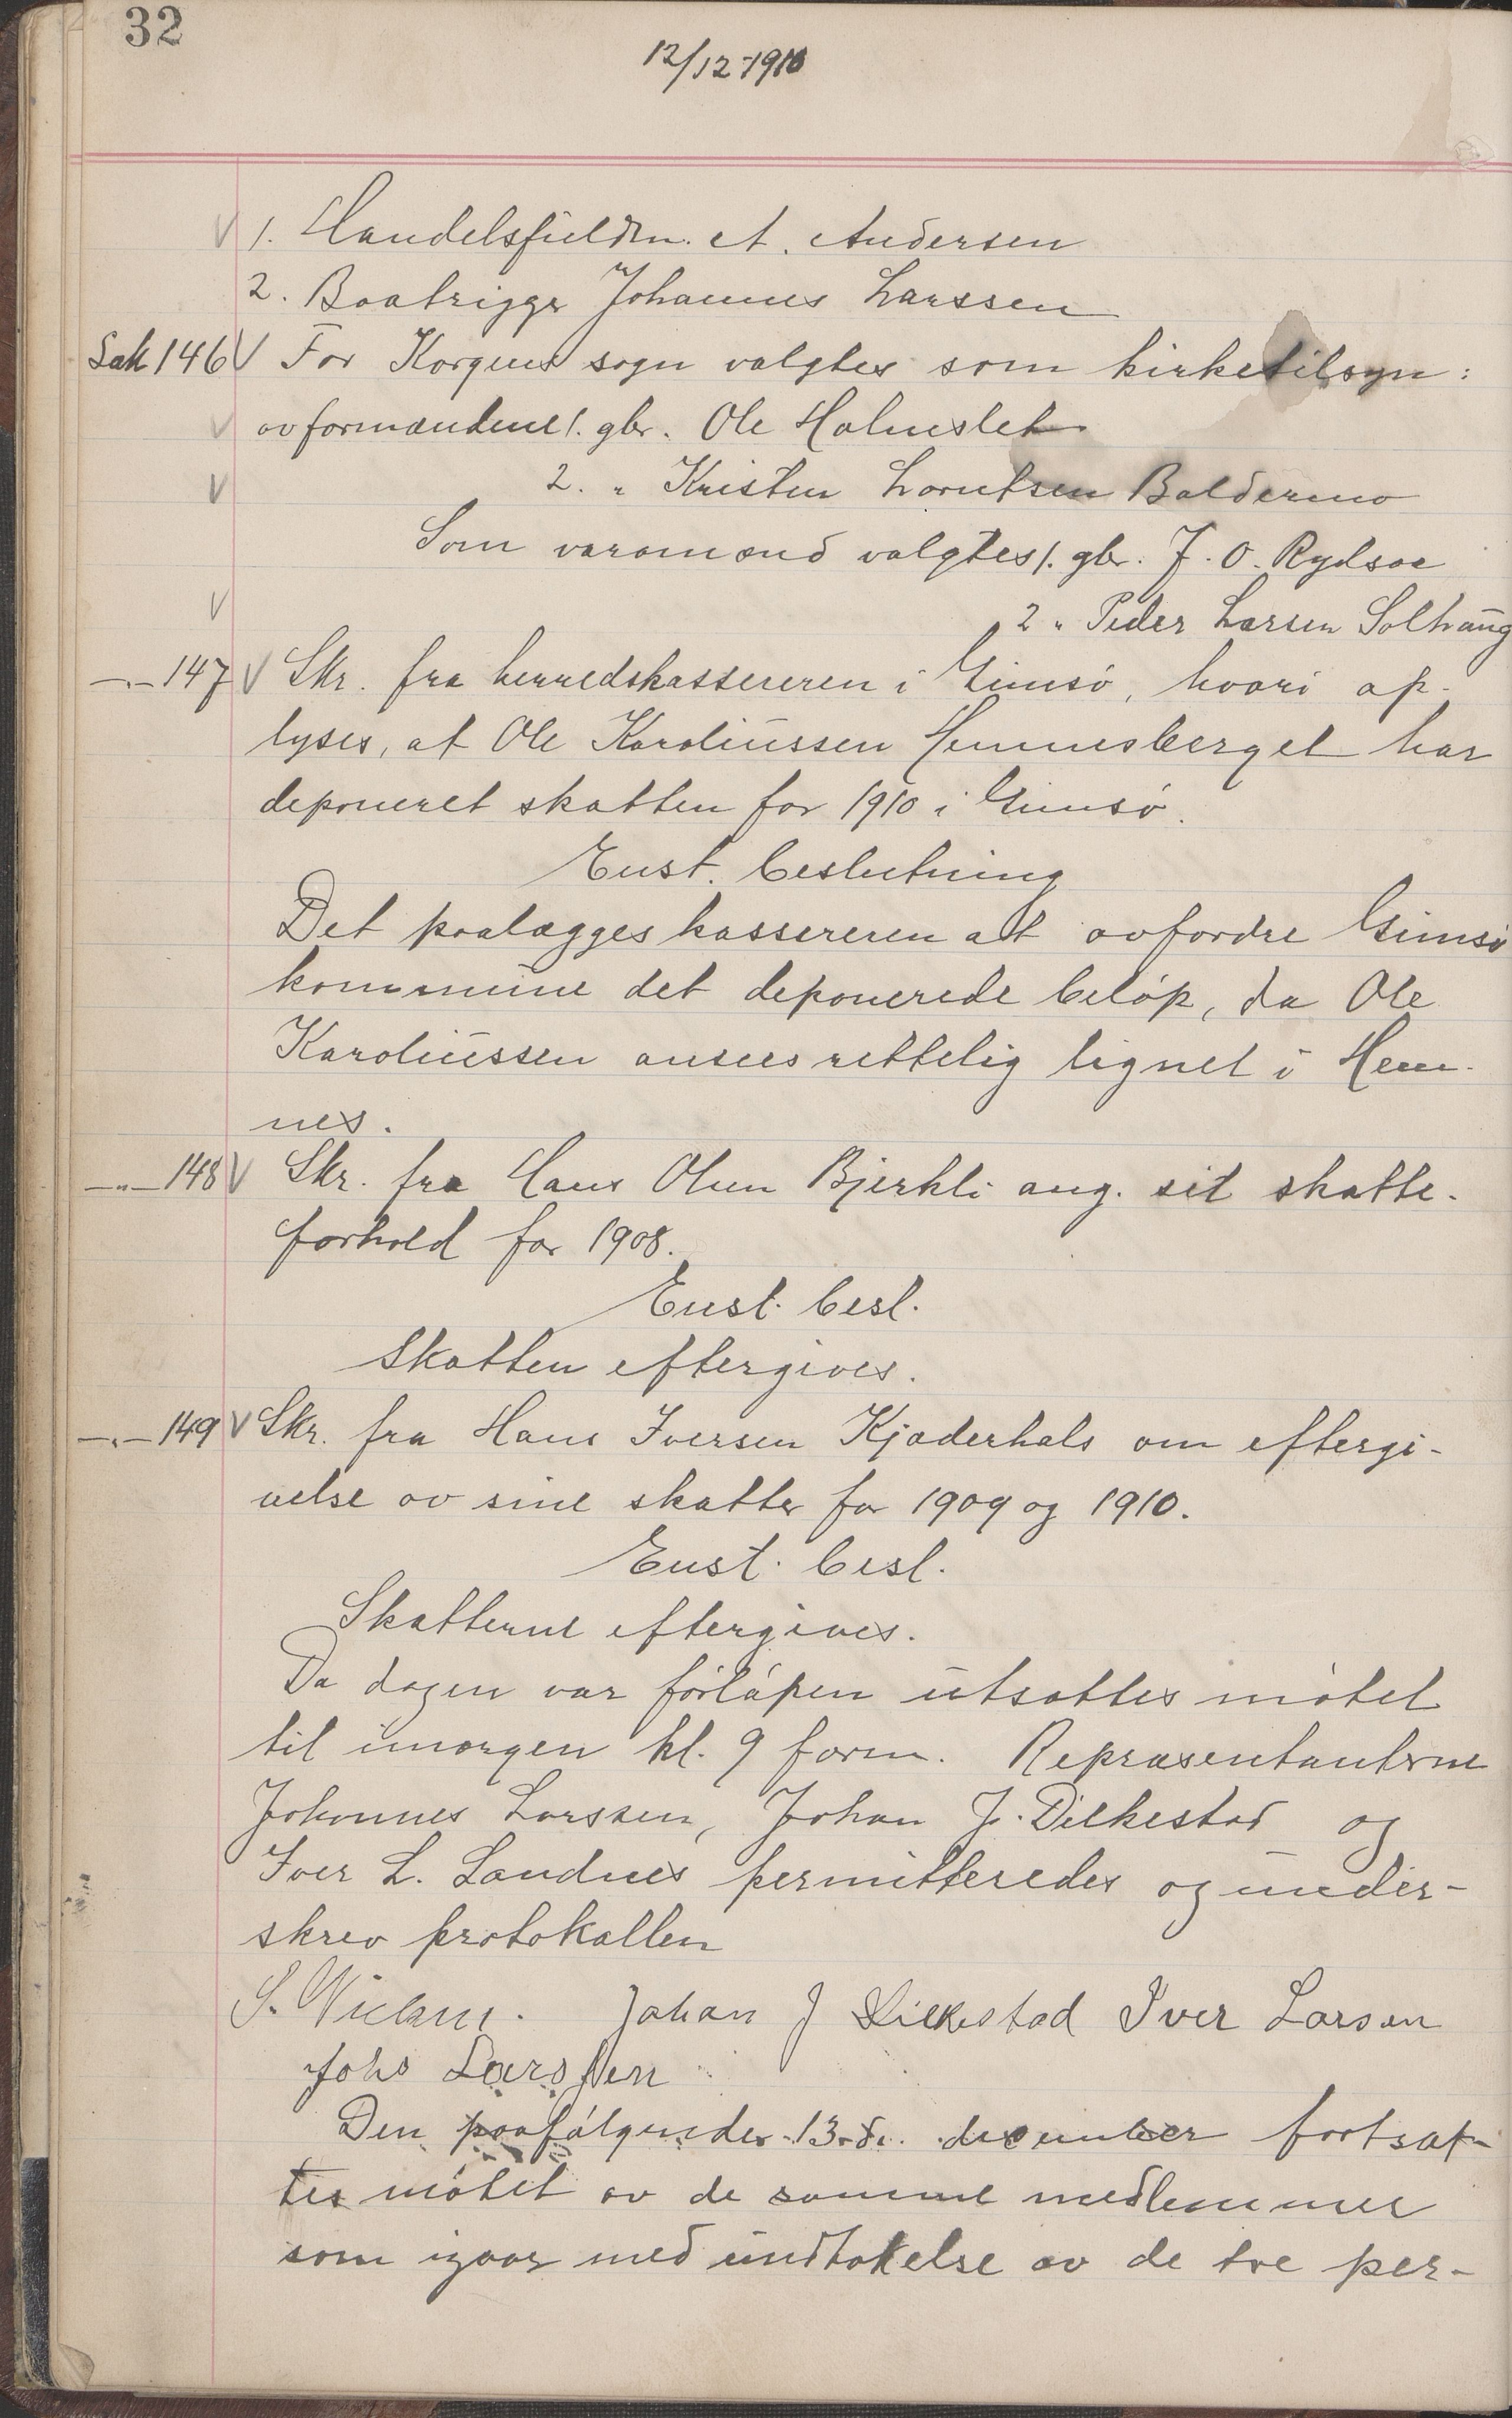 32
12/12-1910
V 1. Handelsfuldm. A. Andersen
2. Baatbygger Johannes Larssen
Sak 146 V For Korgens sogn valgtes som kirketilsyn:
V av formændene 1. gbr. Ole Holmslet
V 2. " Kristen Lorntsen Baldermo
Som varamænd valgtes 1. gbr. J. O. Rydsaa
V 2 " Peder Larsen Solhaug
—"— 147 V Skr. fra herredskassereren i Gimsö, hvori op-
lyses, at Ole Karoliussen Hemnesberget har
deponeret skatten for 1910 i Gimsö.
Enst. beslutning
Det paalægges kassereren at avfordre Gimsö
kommune det deponerede belöp, da Ole
Karoliussen ansees rettelig lignet i Hem-
nes.
—"— 148 V Skr. fra Hans Olsen Bjerkli ang. sit skatte-
forhold for 1908.
Enst. besl.
Skatten eftergives.
—"— 149 V Skr. fra Hans Iversen Kjæderhals om eftergi-
velse av sine skatter for 1909 og 1910.
Enst. besl.
Skatterne eftergives.
Da dagen var forlöpen utsattes mötet
til imorgen kl. 9 form. Repræsentanterne
Johannes Larssen, Johan J. Dilkestad og
Iver L. Sandnes permitteredes og under-
skrev protokollen
Johan J Dilkestad Iver Larsen
Johs Larssen
Den paafölgende 13.de december fortsat-
tes mötet av de samme medlemmer
som igaar med undtakelse av de tre per-